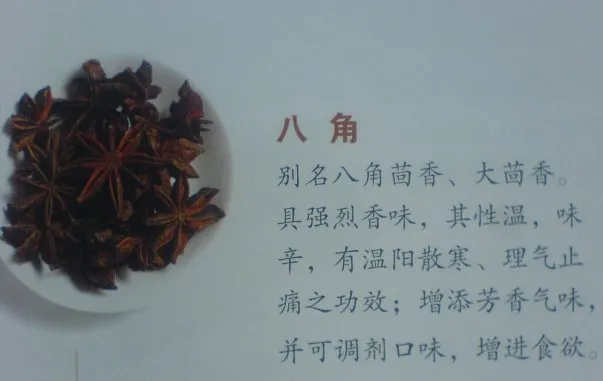 八角
别名八角茴香、大茴香。
具强烈香味，其性温，味
辛，有温阳散寒、理气止
痛之功效；增添芳香气味，
并可调剂口味，增进食欲。